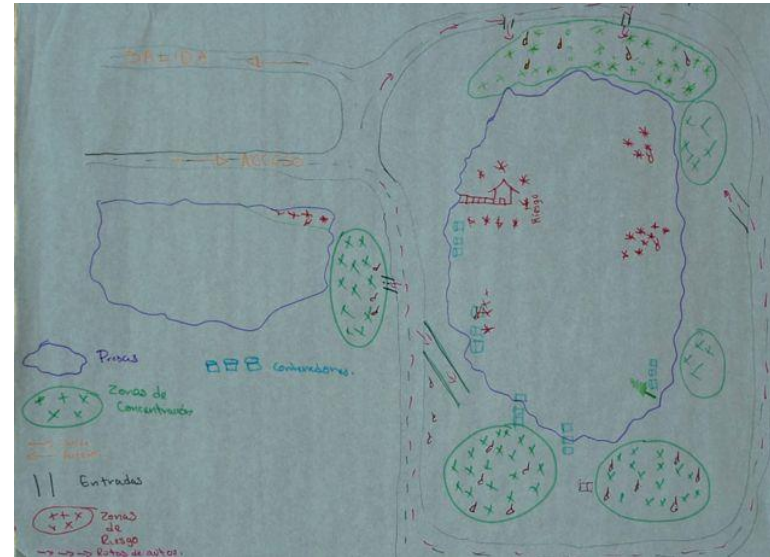 SALIDA
ACCESO
Riesgo
Presas
Contenedores.
Zonas de
Concentración
Entradas
Zonas
de
Riesgo
Rutas de autos.